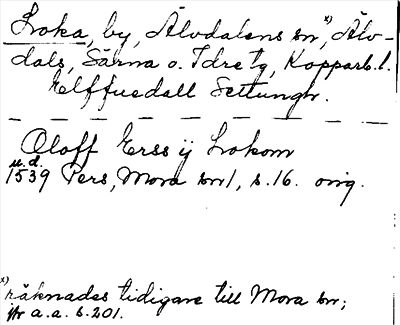 Loka, by, Älvdalens sn x), Älv-
dals, Särna o. Idre tg, Kopparb.l.
Elffuedall Settungh.
Oloff Erss ij Lokom
u.d.
1539 Pers, Mora sn 1, s.16. orig.
x) räknades tidigare till Mora sn;
jfr a.a. s.201.